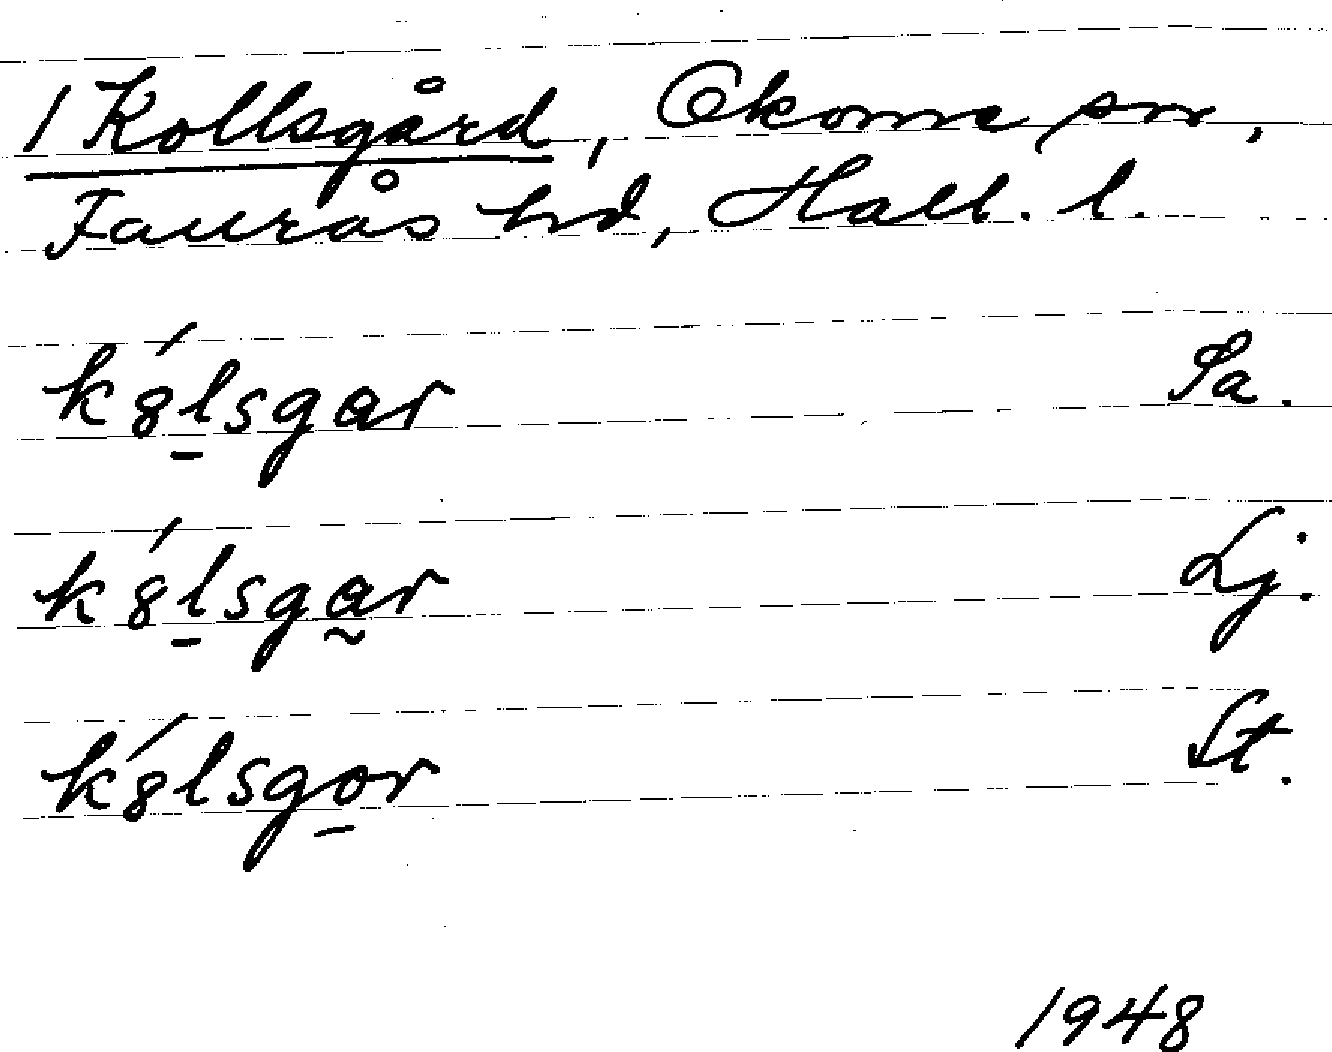 / Kollsgård, Okome sn,
Faurås hd, Hall. l.
k8́l̲sgar Sa.
k8́l̲sga̰r Lj.
k8́lsgo̲r St.
1948